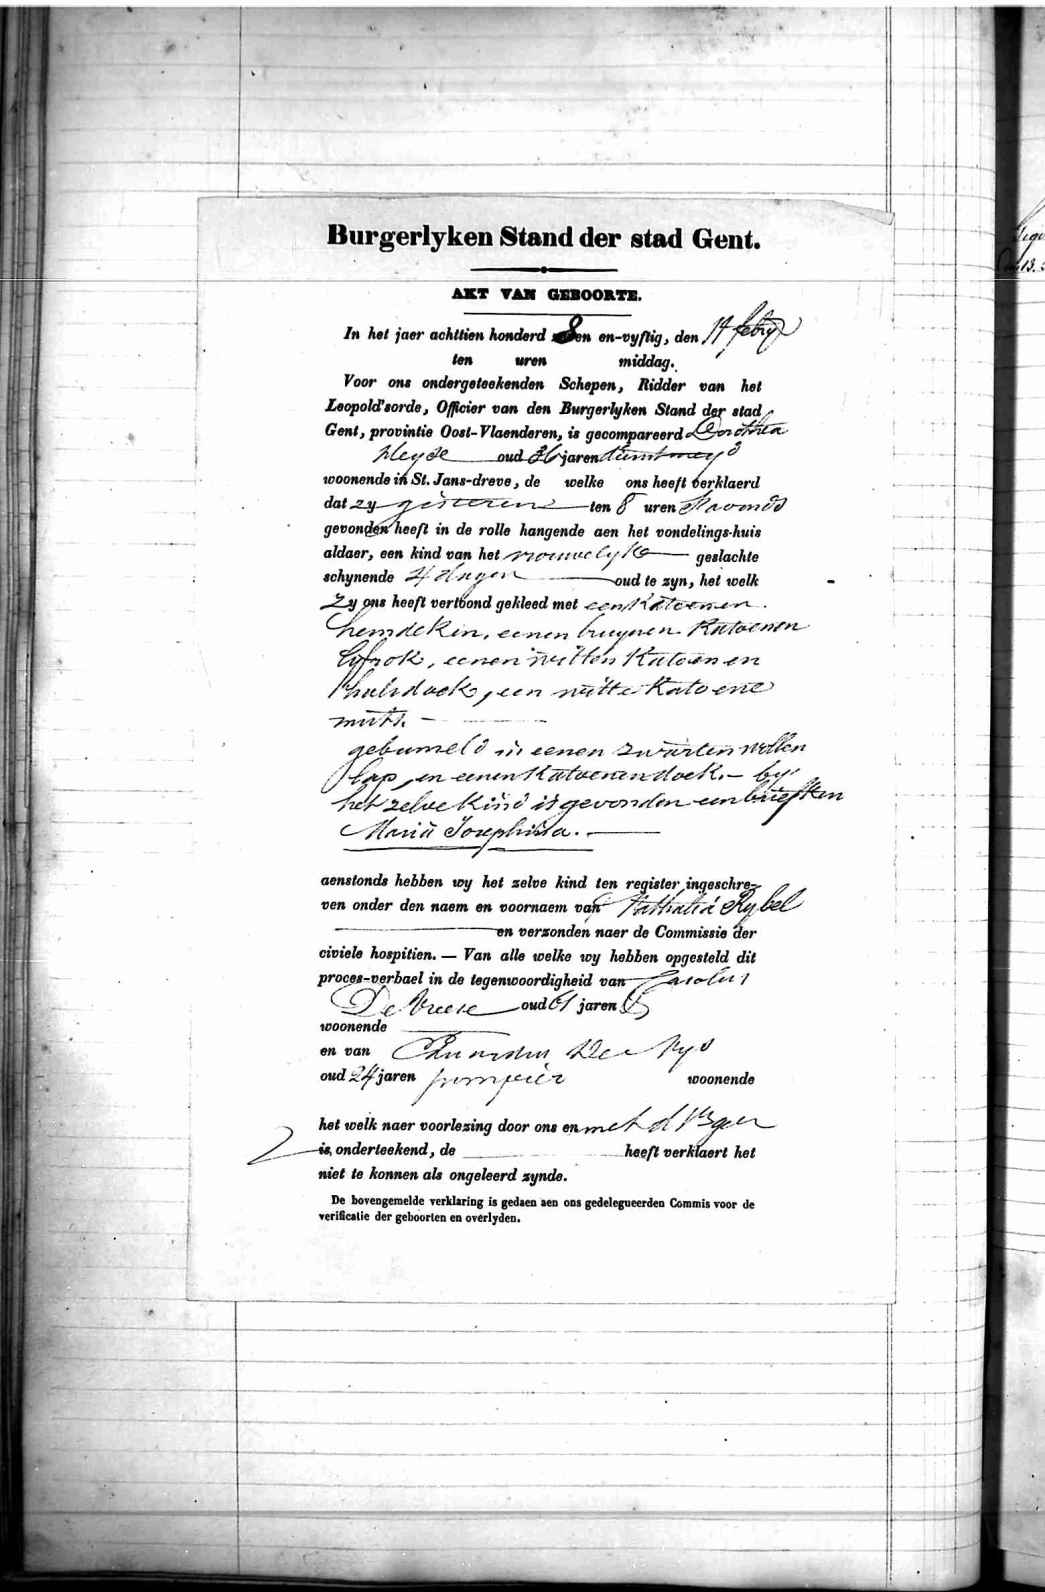 Burgerlyken Stand der stad Gent.
AKT VAN GEBOORTE.
In het jaer achttien honderd 8 en en-vyftig, den 14 febry
ten uren middag.
Voor ons ondergeteekenden Schepen, Ridder van het
Leopold'sorde, Officier van den Burgerlyken Stand der stad
Gent, provintie Oost-Vlaenderen, is gecompareerd Dorothea
Heyde oud 36 jaren dienstmeyd
woonende in St. Jans-dreve, de welke ons heeft verklaerd
dat zy gisteren ten 8 uren s'avonds
gevonden heeft in de rolle hangende aen het vondelings-huis
aldaer, een kind van het vrouwelyk geslachte
schynende 4 dagen oud te zyn, het welk
Zy ons heeft vertoond gekleed met een Katoenen
hemdekin, eenen bruynen Katoenen
lyfrok, eenen witten Katoenen
halsdoek, een witte Katoene
muts.
gebumeld in eenen zwarten wollen
lap, en eenen Katoenen doek. - by
het zelve kind is gevonden een briefken
Maria Josephina.
aenstonds hebben wy het zelve kind ten register ingeschre-
ven onder den naem en voornaem van Nathalia Rybel
en verzonden naer de Commissie der
civiele hospitien. — Van alle welke wy hebben opgesteld dit
proces-verbael in de tegenwoordigheid van Jacobus
De Vreese oud 61 jaren
woonende
en van
oud 24 jaren pompier woonende
het welk naer voorlezing door ons en met d
is, onderteekend, de heeft verklaert het
niet te konnen als ongeleerd zynde.
De bovengemelde verklaring is gedaen aen ons gedelegueerden Commis voor de
verificatie der geboorten en overlyden.